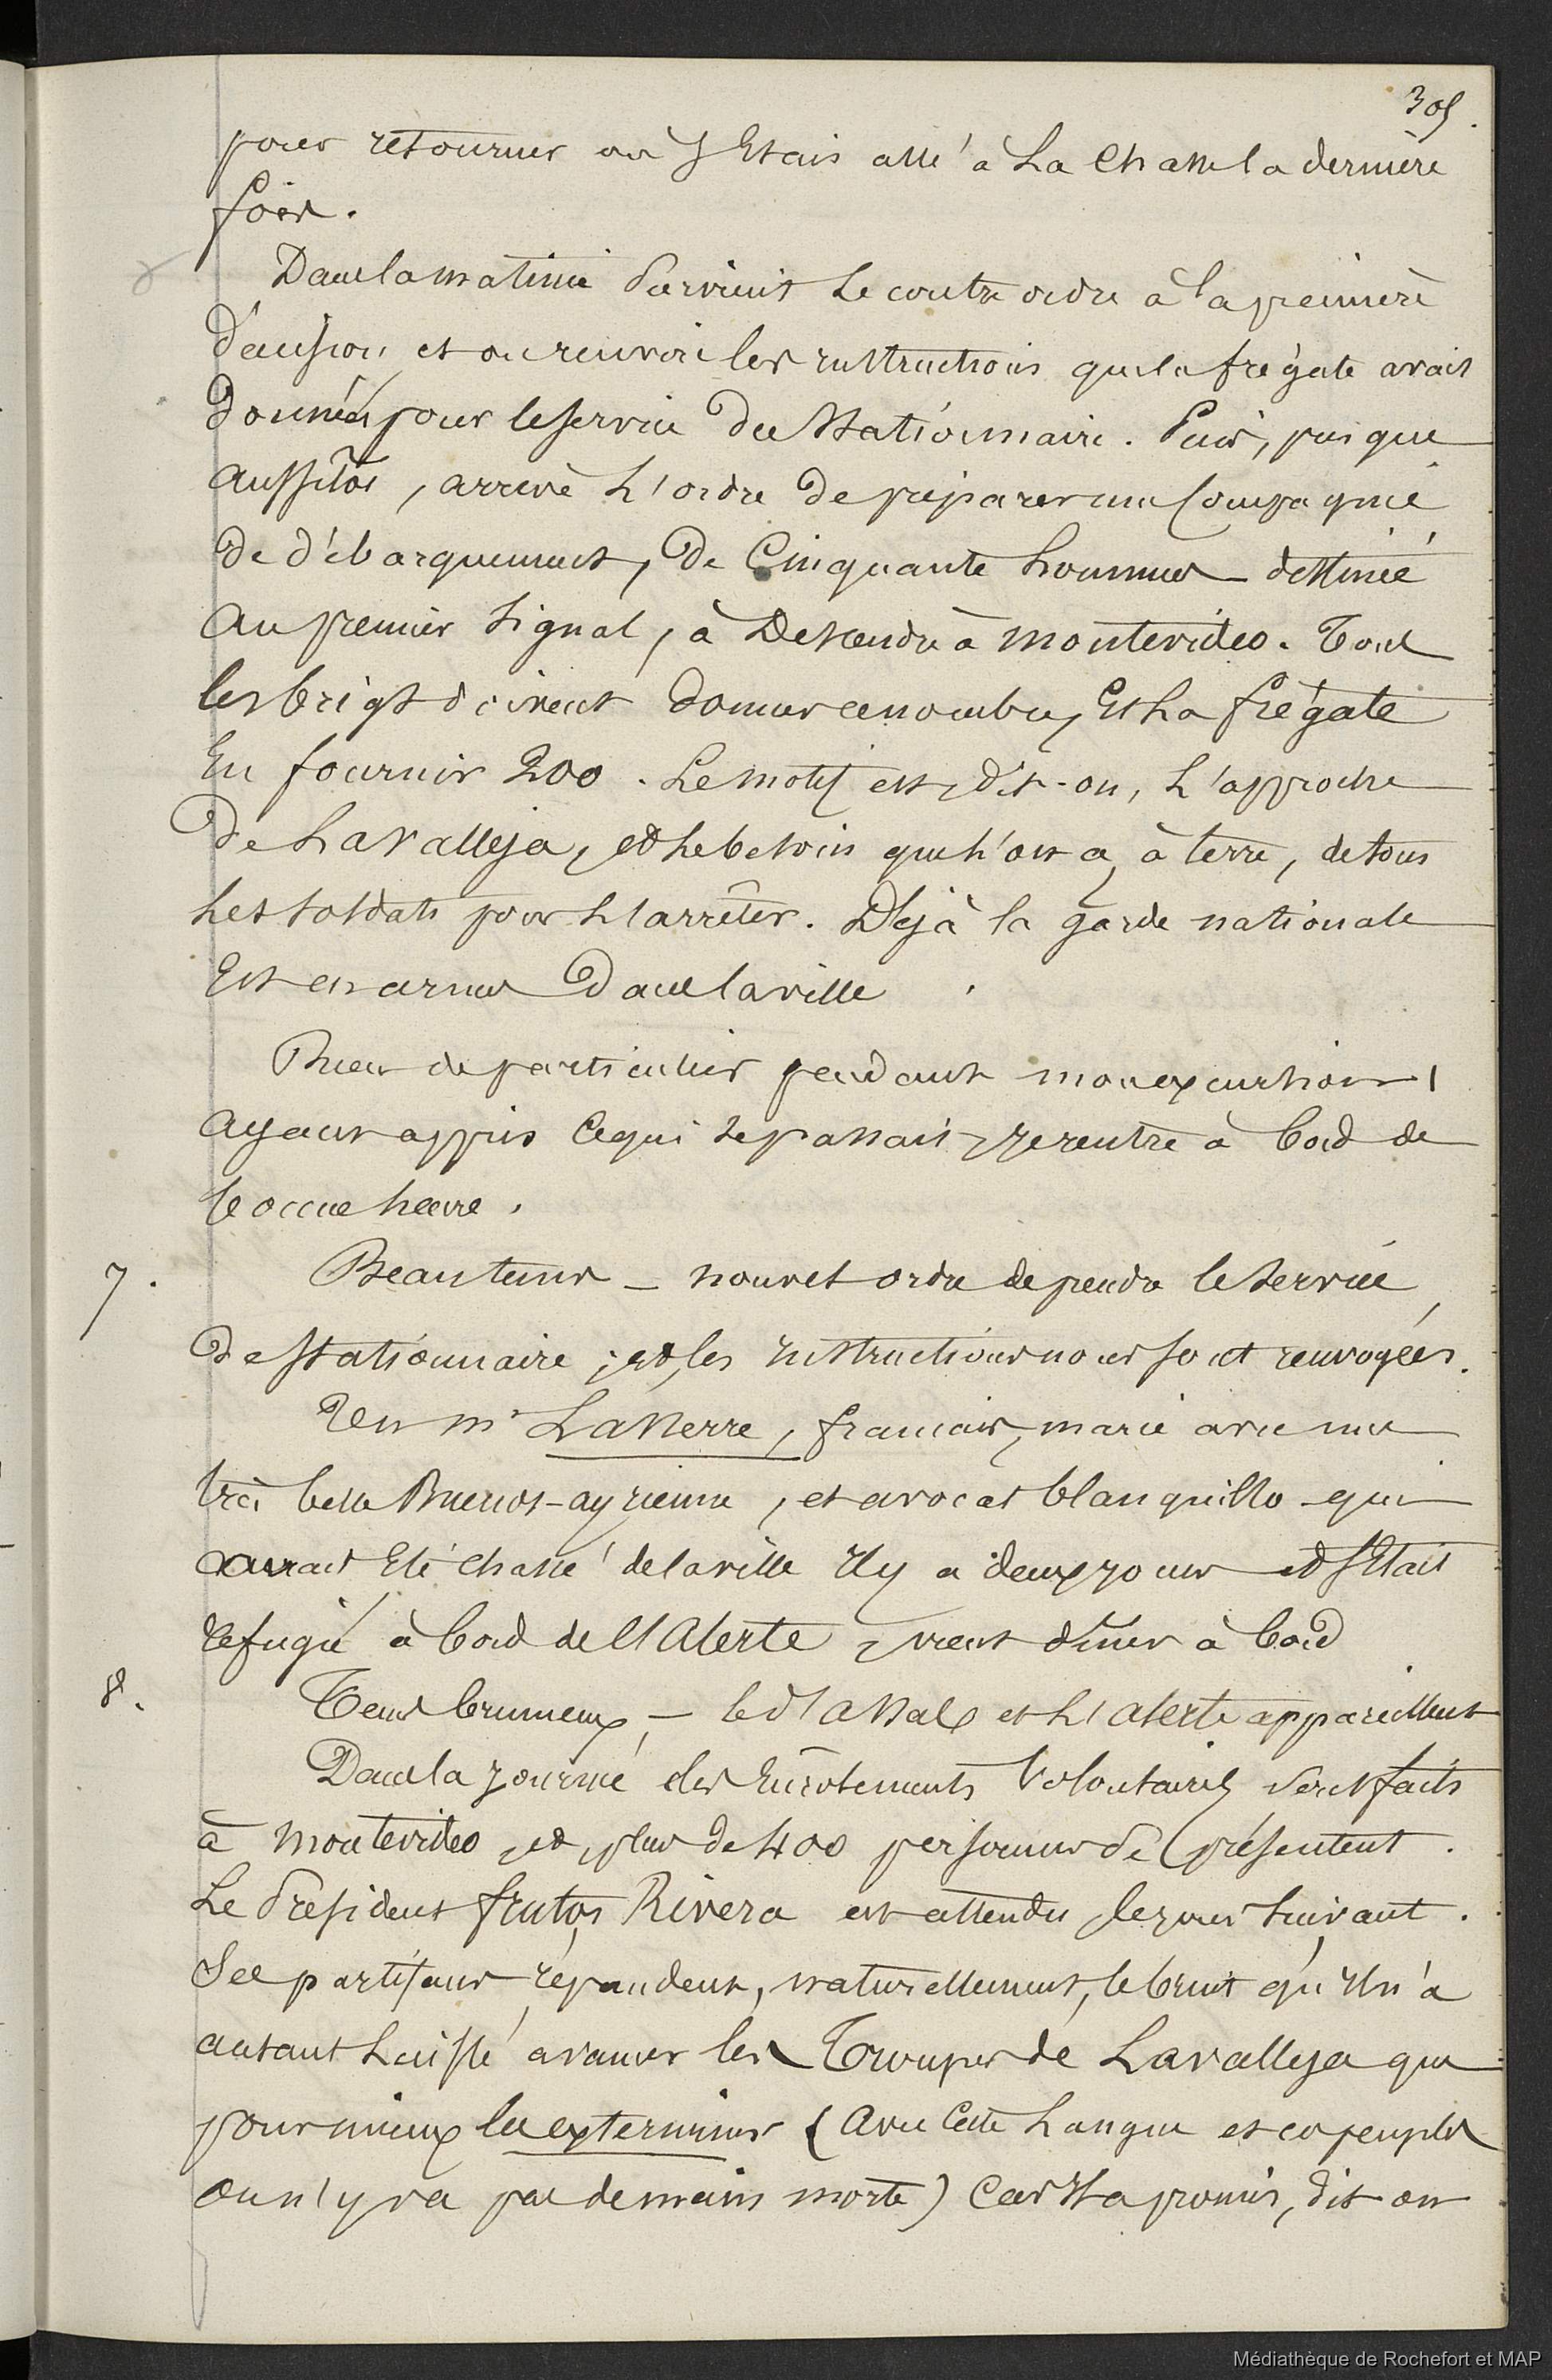 305.
pour retourner où J'Etais allé à La Chasse la dernière
fois.
Dans la matinée Survient Le contre ordre à la première
Décision, et on renvoie les instructions que la frégate avait
Données pour le service de stationnaire. Puis, presque
aussitôt, arrive L'ordre De préparer une Compagnie
De débarquement, De Cinquante hommes destinée
Au premier signal, à Descendre à Montevideo. Tous
les brigs doivent Donner ce nombre, Et La frégate
En fournir 200. Le motif est, dit-on, L'approche
De Lavalleja, et Le besoin que L'on a, à terre, de tous
Les soldats pour L'arrêter. Déjà la garde nationale
Est en armes Dans la ville.
Rien de particulier pendant mon excursion,
Ayant appris Ce qui se passait, je rentre à bord de
bonne heure.
7. Beau temps — nouvel ordre de prendre le service
De stationnaire; et, les instructions nous sont renvoyées.
Un Mr Lasserre, français, marié avec une
très belle Buenos-ayrienne, et avocat blanquillo qui
aurait Eté chassé de la ville Il y a deux jours et s'Etait
réfugié à bord de L'Alerte, vient dîner à bord
8. Temps brumeux, — le d'Assas et L'Alerte appareillent
Dans la journée des Enrôlements Volontaires sont faits
à Montevideo, et, plus de 400 personnes se présentent.
Le Président frutos Rivera est attendu le jour suivant.
Ses partisans répandent, naturellement, le bruit qu'Il n'a
autant Laissé avancer les Troupes de Lavalleja que
pour mieux les exterminer (Avec Cette Langue et ces peuples
on n'y va pas de main morte) Car Il a promis, dit on
Médiathèque de Rochefort et MAP